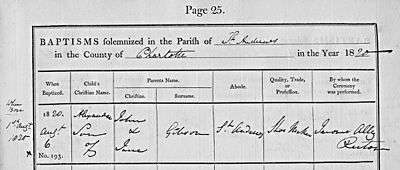 Page 25.
BAPTISMS solemnized in the Parish of St Andrews
in the County of Charlotte in the Year 1820
When Baptized. Child's Christian Name. Parents Name. Abode. Quality, Trade, or Profession. By whom the Ceremony was performed.
Christian. Surname.
1820. Alexander John
Augt Son & Gibson St Andrews Shoe Maker Jerome Alley
6. of Jane Rector
No. 193.
1st Augt
1820